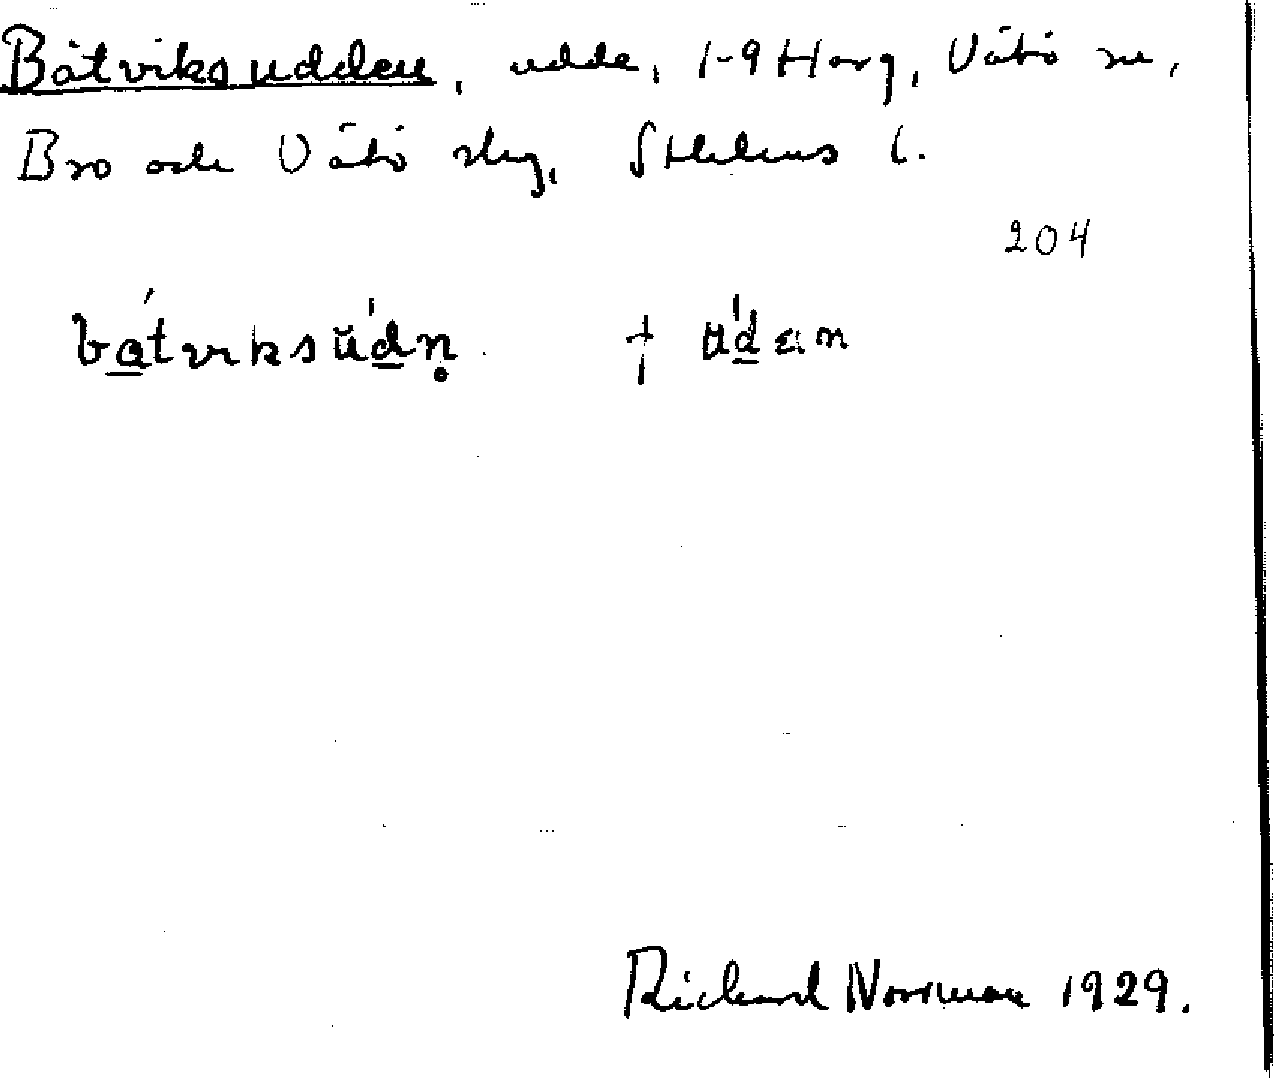 Båtviksudden, udde, 1-9 Harg, Vätö sn,
Bro och Vätö skg, Sthlms l.
204
båtviksŭdn̥ † ŭdan
Richard Norrman 1929.